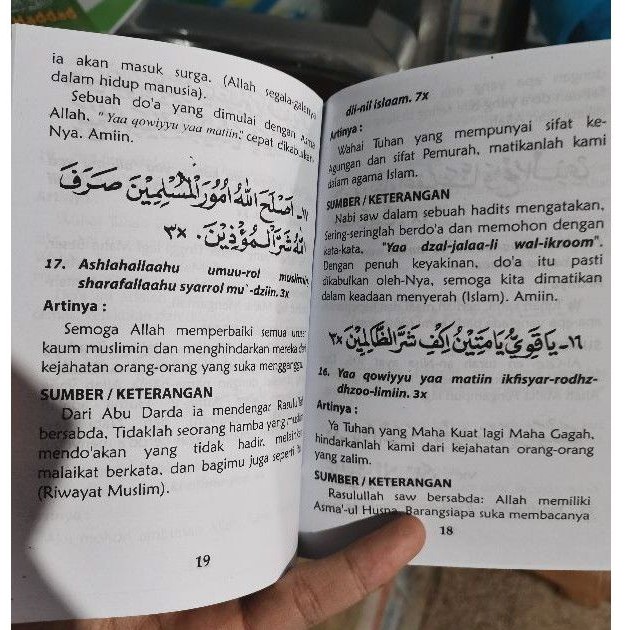 dii-nil islaam. 7x
Artinya :
Wahai Tuhan yang mempunyai sifat ke-
Agungan dan sifat Pemurah, matikanlah kami
dalam agama Islam.
SUMBER / KETERANGAN
Nabi saw dalam sebuah hadits mengatakan,
Sering-seringlah berdo'a dan memohon dengan
kata-kata, "Yaa dzal-jalaa-li wal-ikroom".
Dengan penuh keyakinan, do'a itu pasti
dikabulkan oleh-Nya, semoga kita dimatikan
dalam keadaan menyerah (Islam). Amiin.
١٦- يَا قَوِيُّ يَا مَتِيْنُ اِكْفِ شَرَّ الظَّالِمِيْنَ ٣x
16. Yaa qowiyyu yaa matiin ikfisyar-rodhz-
dhzoo-limiin. 3x
Artinya :
Ya Tuhan yang Maha Kuat lagi Maha Gagah,
hindarkanlah kami dari kejahatan orang-orang
yang zalim.
SUMBER / KETERANGAN
Rasulullah saw bersabda: Allah memiliki
Asma'-ul Husna. Barangsiapa suka membacanya
18
ia akan masuk surga. (Allah segala-galanya
dalam hidup manusia).
Sebuah do'a yang dimulai dengan Asma
Allah, "Yaa qowiyyu yaa matiin," cepat dikabulkan-
Nya. Amiin.
١٧- اَصْلَحَ اللهُ اُمُوْرَ الْمُسْلِمِيْنَ صَرَفَ
اللهُ شَرَّ الْمُؤْذِيْنَ. ٣x
17. Ashlahallaahu umuu-rol muslimin
sharafallaahu syarrol mu'-dziin. 3x
Artinya :
Semoga Allah memperbaiki semua
kaum muslimin dan menghindarkan mereka dari
kejahatan orang-orang yang suka mengganggu.
SUMBER / KETERANGAN
Dari Abu Darda ia mendengar Rasulullah
bersabda, Tidaklah seorang hamba yang muslim
mendo'akan yang tidak hadir, melainkan
malaikat berkata, dan bagimu juga seperti
(Riwayat Muslim).
19